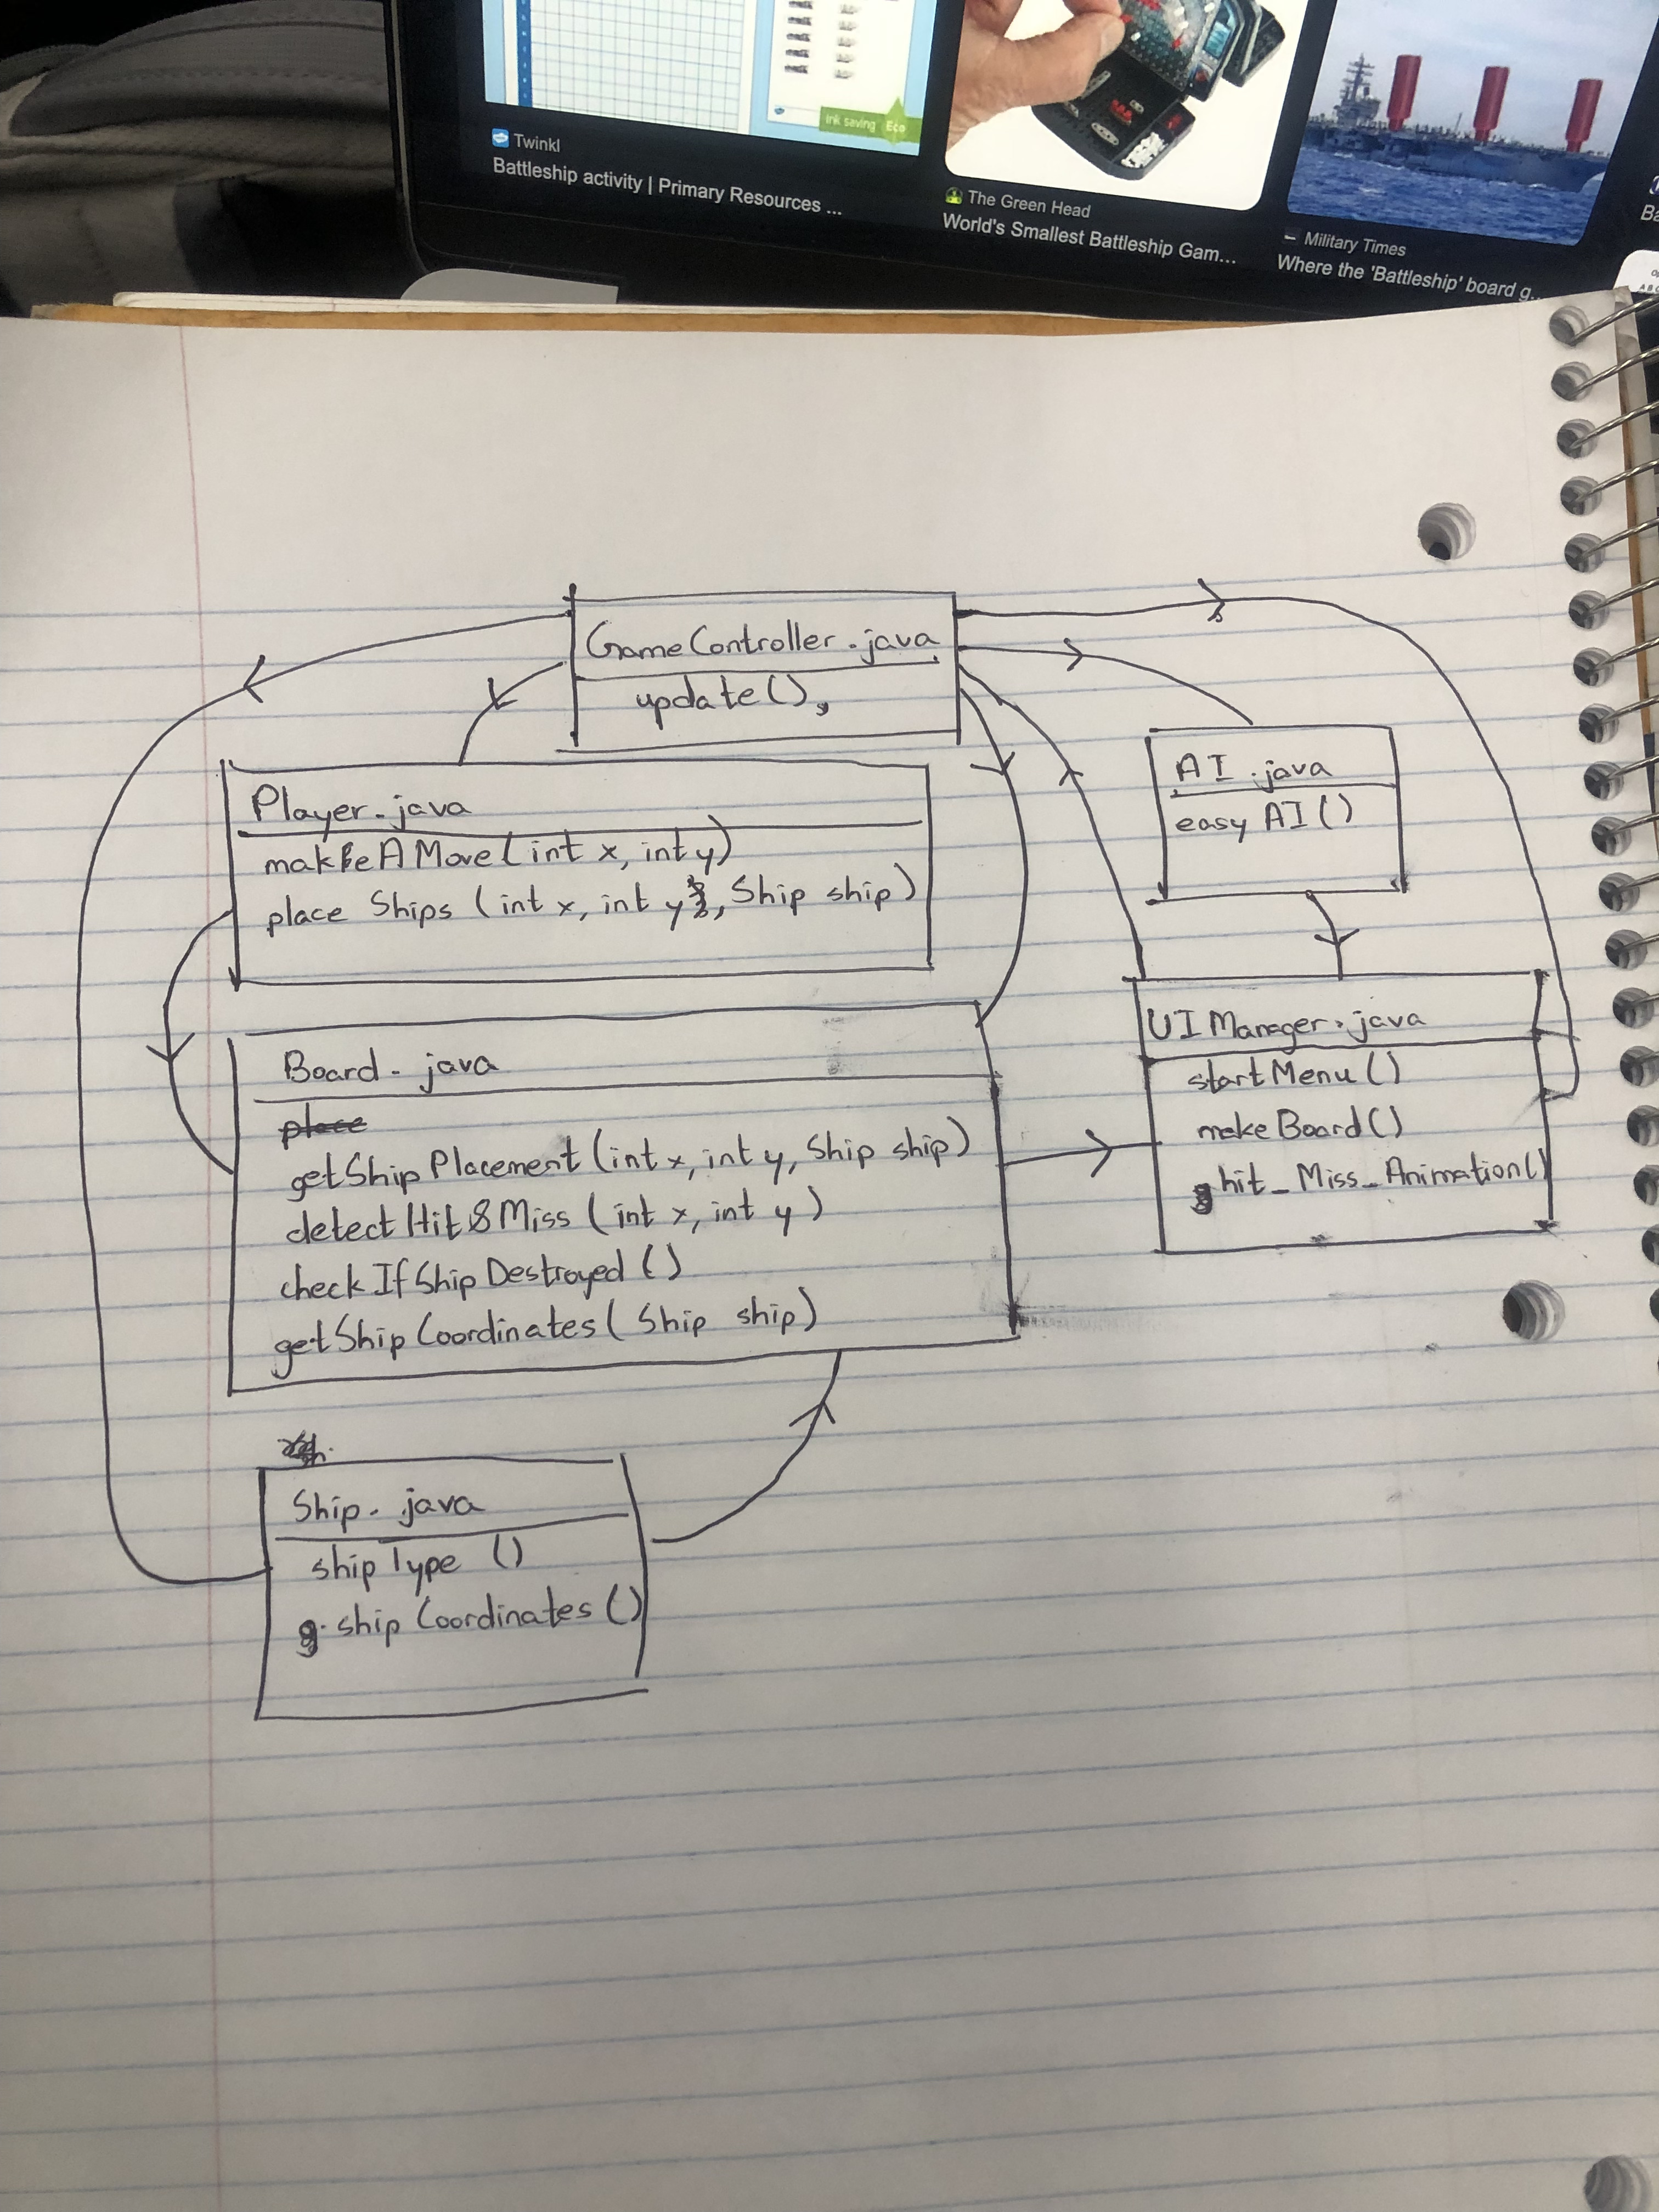 ink saving Eco
Twinkl
Battleship activity | Primary Resources ...
The Green Head
World's Smallest Battleship Gam...
Military Times
Where the 'Battleship' board g...
GameController.java
update(),
Player.java
makeAMove(int x, int y)
place Ships (int x, int y, Ship ship)
AI.java
easy AI()
Board.java
place
getShipPlacement(int x, int y, Ship ship)
detectHit&Miss (int x, int y)
checkIfShipDestroyed()
getShipCoordinates(Ship ship)
UIManager.java
startMenu()
makeBoard()
hit_Miss_Animation()
Ship.java
shipType ()
shipCoordinates()